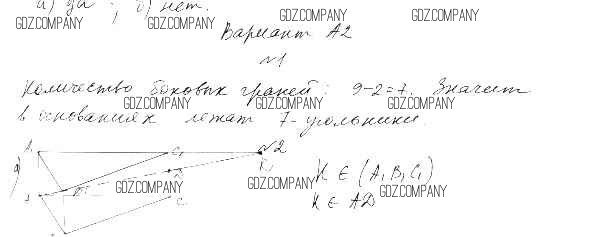 а) да ; б) нет.
GDZ.COMPANY GDZ.COMPANY GDZ.COMPANY
Вариант А2
№1
Количество боковых граней: 9-2=7. Значит
GDZ.COMPANY GDZ.COMPANY GDZ.COMPANY
в основаниях лежат 7-угольники.
№2
а)
A₁ C₁ K
K ∈ (A₁B₁C₁)
GDZ.COMPANY GDZ.COMPANY GDZ.COMPANY
K ∈ AD
D
C